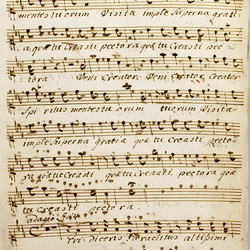 mentes tuorum Visita imple superna grati
a quæ tu Creasti pectora quæ tu Creasti pec
tora Veni Creator Veni Creator Creator
Spiritus mentes tuorum tuorum Visita
imple Superna gratia quæ tu Creasti Pector
a quæ tu Creasti quæ tu creasti pectora quæ
tu creasti pectora.
adagio
Qui diceris Paraclitus altissimi